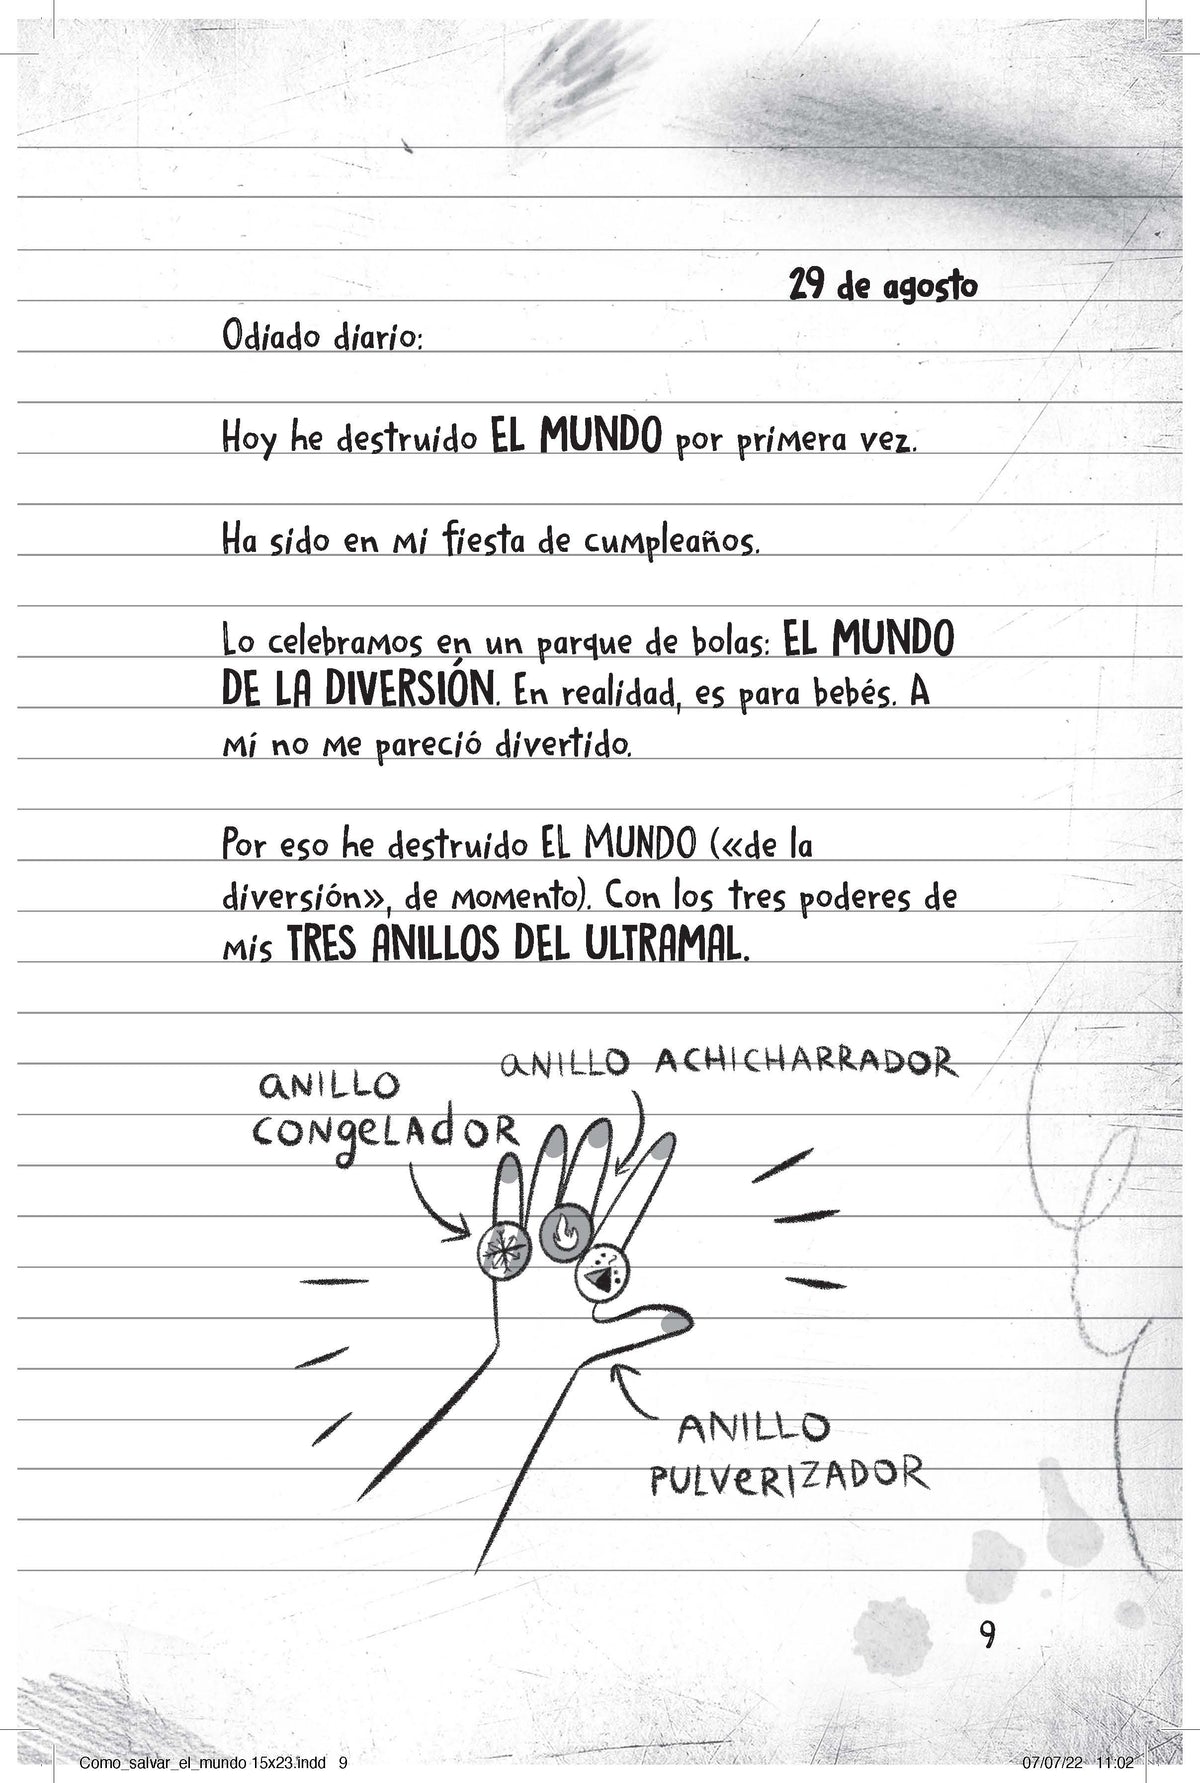 29 de agosto
Odiado diario:
Hoy he destruido EL MUNDO por primera vez.
Ha sido en mi fiesta de cumpleaños.
Lo celebramos en un parque de bolas: EL MUNDO
DE LA DIVERSIÓN. En realidad, es para bebés. A
mí no me pareció divertido.
Por eso he destruido EL MUNDO («de la
diversión», de momento). Con los tres poderes de
mis TRES ANILLOS DEL ULTRAMAL.
ANILLO ACHICHARRADOR
ANILLO
CONGELADOR
ANILLO
PULVERIZADOR
9
Como_salvar_el_mundo 15x23.indd 9
07/07/22 11:02